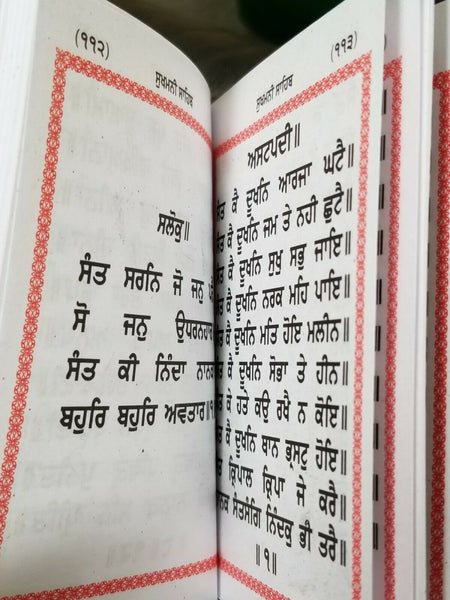 (੧੧੨)
ਸੁਖਮਨੀ ਸਾਹਿਬ
ਸਲੋਕੁ॥
ਸੰਤ ਸਰਨਿ ਜੋ ਜਨੁ
ਸੋ ਜਨੁ
ਸੰਤ ਕੀ ਨਿੰਦਾ
ਬਹੁਰਿ ਬਹੁਰਿ ਅਵਤਾਰ॥੧
(੧੧੩)
ਸੁਖਮਨੀ ਸਾਹਿਬ
ਅਸਟਪਦੀ॥
ਕੈ ਦੂਖਨਿ ਆਰਜਾ ਘਟੈ॥
ਕੈ ਦੂਖਨਿ ਜਮ ਤੇ ਨਹੀ ਛੁਟੈ॥
ਕੈ ਦੂਖਨਿ ਸੁਖੁ ਸਭੁ ਜਾਇ॥
ਕੈ ਦੂਖਨਿ ਨਰਕ ਮਹਿ ਪਾਇ॥
ਕੈ ਦੂਖਨਿ ਮਤਿ ਹੋਇ ਮਲੀਨ॥
ਕੈ ਦੂਖਨਿ ਸੋਭਾ ਤੇ ਹੀਨ॥
ਕੇ ਹਤੇ ਕਉ ਰਖੈ ਨ ਕੋਇ॥
ਕੈ ਦੂਖਨਿ ਥਾਨ ਭ੍ਰਸਟੁ ਹੋਇ॥
ਕ੍ਰਿਪਾਲ ਕ੍ਰਿਪਾ ਜੇ ਕਰੈ॥
ਸੰਤਸੰਗਿ ਨਿੰਦਕੁ ਭੀ ਤਰੈ॥
॥੧॥